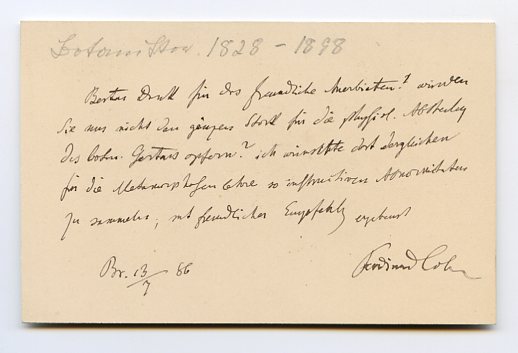 Botaniker. 1828 - 1898
Besten Dank für das freundliche Anerbieten! würden
Sie uns nicht den ganzen Stock für die physiol. Abtheilg
des botan. Gartens opfern? ich wünschte dort dergleichen
für die Metamorphosenlehre so instructiven Abnormitäten
zu sammeln; mit freundlicher Empfehlg ergebenst
Br. 13/7 86
Ferdinand Cohn